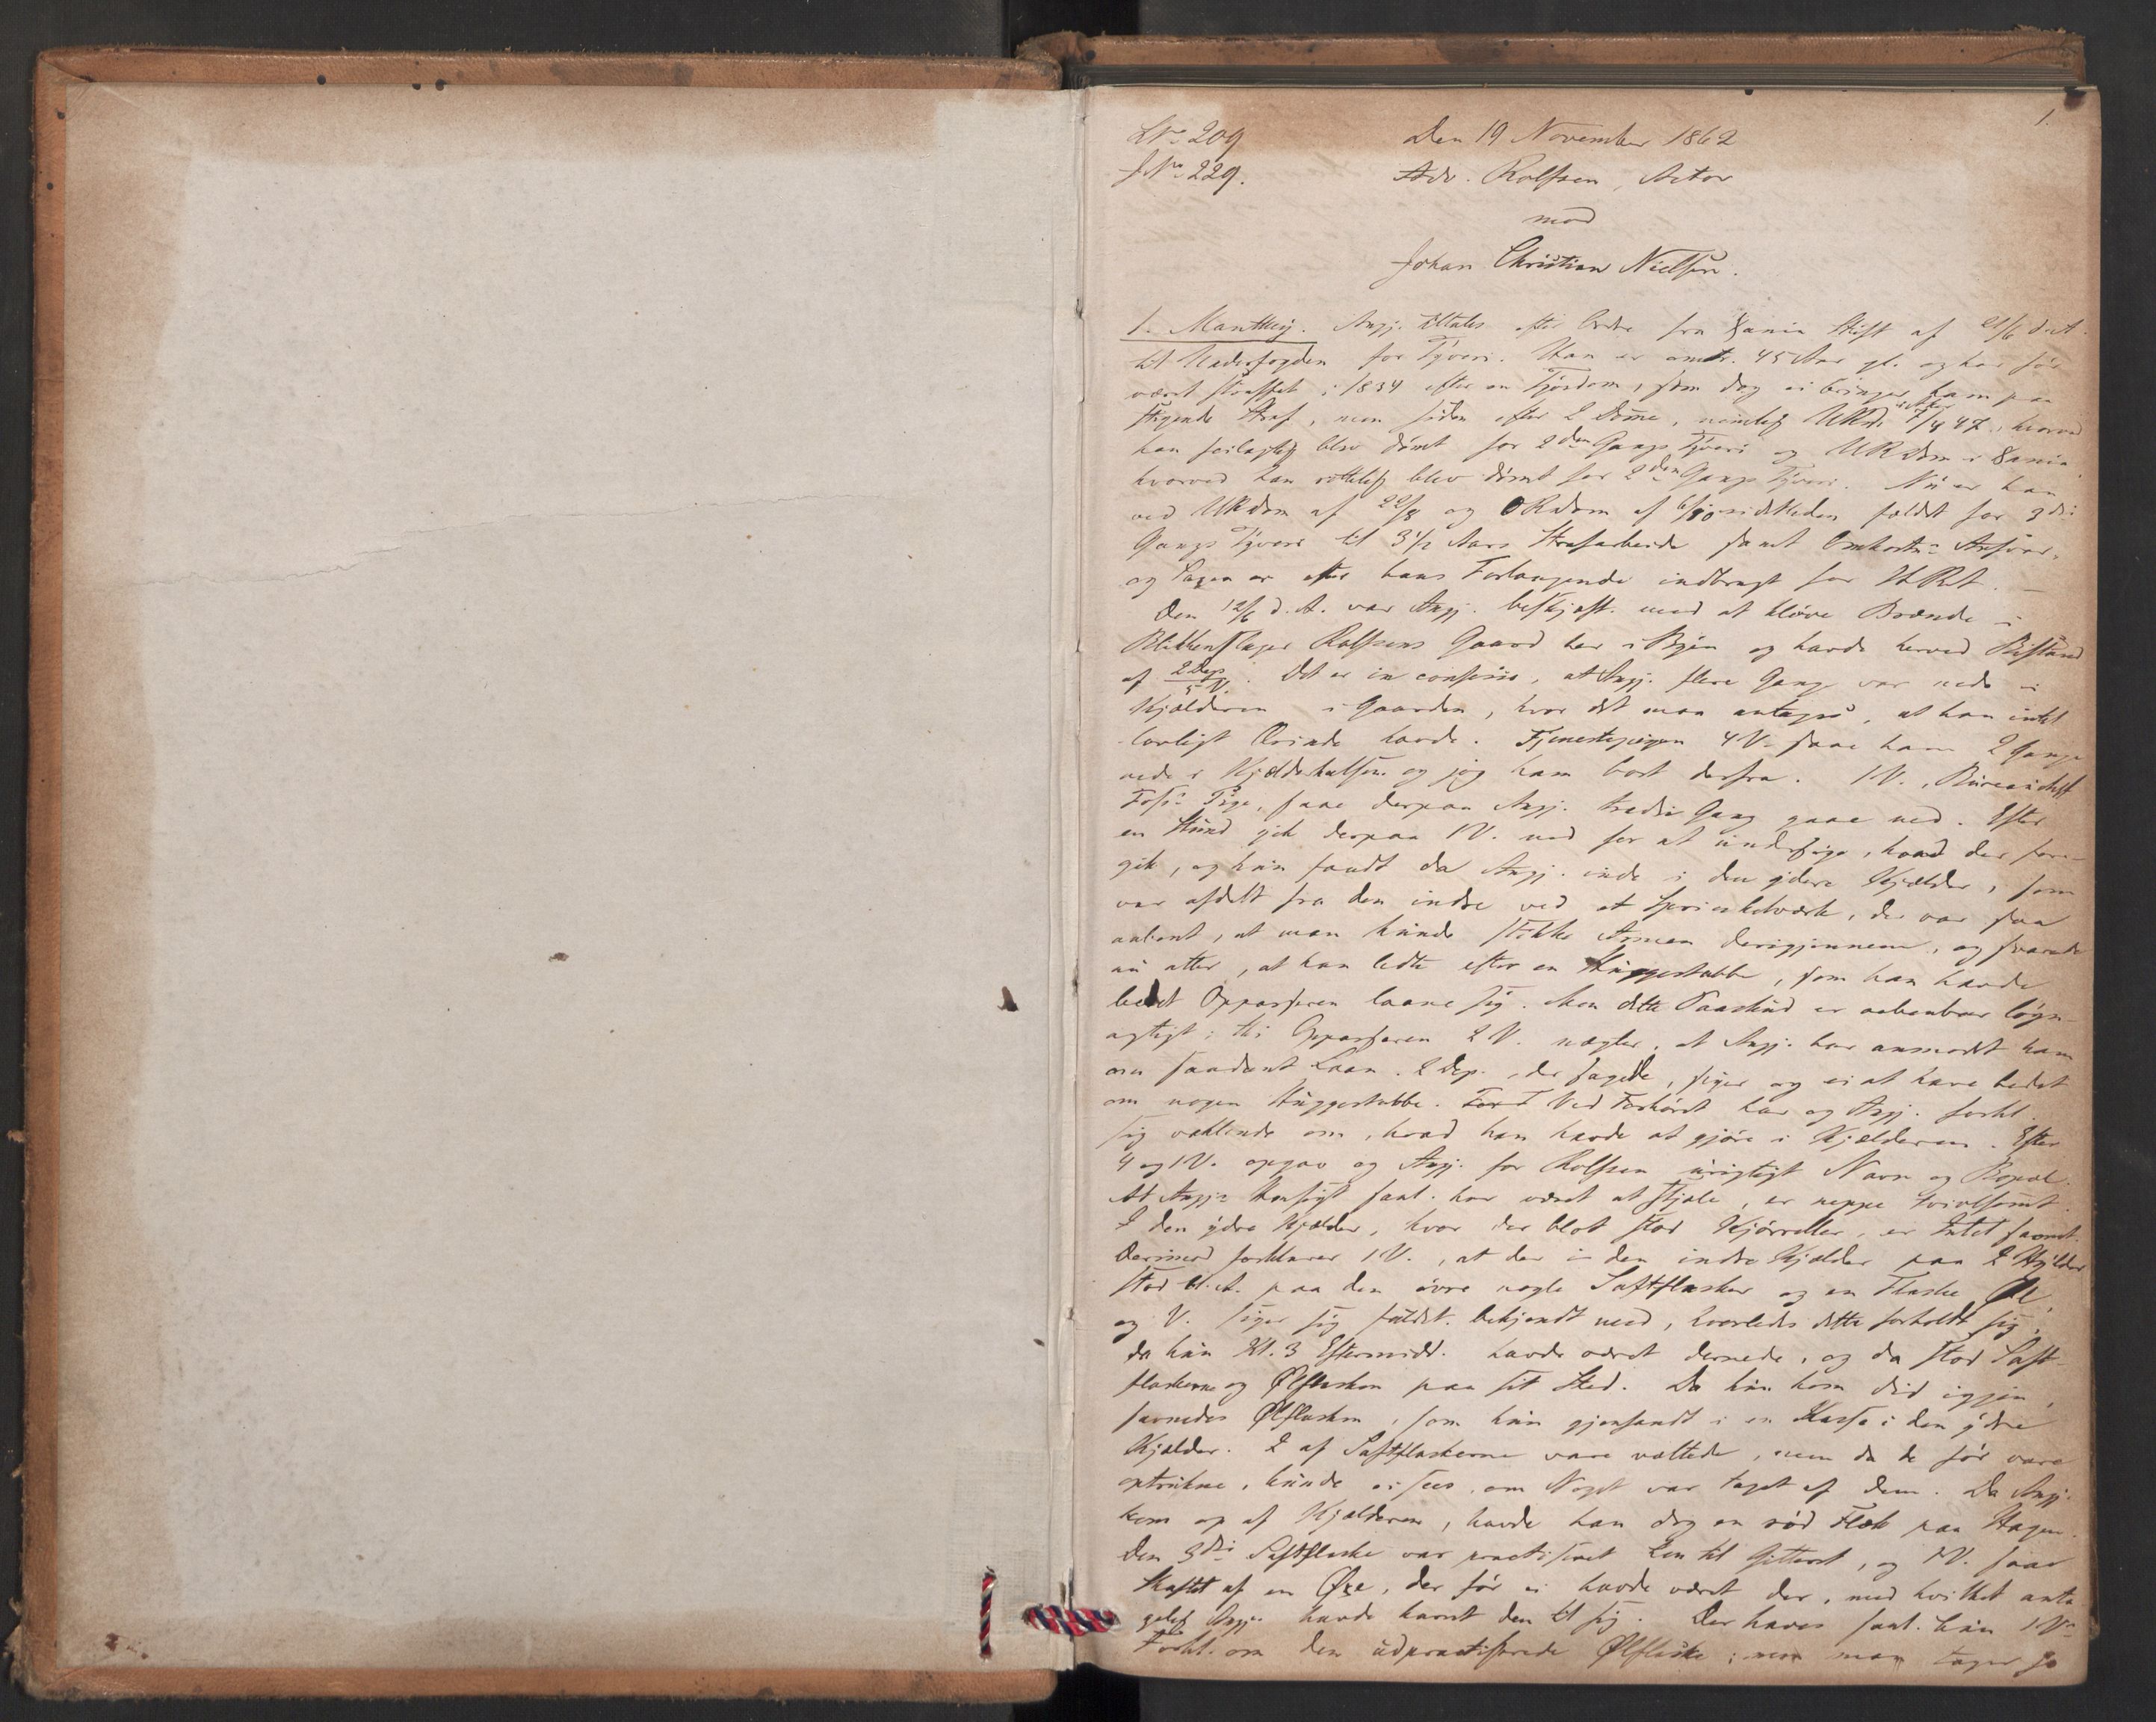 1.
LNo 209
Den 19 November 1862
JNo 229.
Adv. Rolfsen, Actor
mod
Johan Christian Nielsen.
1. Manthey. Angj. tiltales efter Ordre fra Xania Stift af 21/6 d. A.
til Underfogden for Tyveri. Han er omtr. 45 Aar gl. og har før
været straffet i 1834 efter en Tyvsdom, som dog ei bringer ham paa
stigende Straf, men siden efter 2 Domme, nemlig URd. 7/4 47, hvorved
han feilagtig blev dømt for 2den Gangs Tyveri og URdom i Xania,
hvorved han rettelig blev dømt for 2den Gangs Tyveri. Nu er han
ved URdom af 22/8 og ORdom af 6/10 sidstleden fældet for 3die
Gangs Tyveri til 3 1/2 Aars Strafarbeide samt Omkostn: Ansvar,
og Sagen er efter hans Forlangende indbragt for HRt. –
Den 12/6 d. A. var Angj. beskjæft. med at kløve Brænde i
Blikkenslager Rolfsens Gaard her i Byen og havde herved Bistand
af 2 Dep. 5 V. Det er in confesso, at Angj. flere Gang var nede i
Kjælderen i Gaarden, hvor det maa antages, at han intet
lovligt Ærinde havde. Tjenestepigen 4 V. saae ham 2 Gange
nede i Kjælderhalsen og jog ham bort derfra. 1 V.,
Pige, saae derpaa Angj. tredie Gang gaae ned. Efter
en Stund gik derpaa 1 V. ned for at undersøge, hvad der fore-
gik, og hun fandt da Angj. inde i den ydere Kjælder, som
var afdelt fra den indre ved et Sprinkelværk, der var saa
aabent, at man kunde stikke Armen derigjennem, og svarede
nu atter, at han ledte efter en Huggestubbe, som han havde
bedet Opparseren laane sig. Men dette Paaskud er aabenbar løgn-
agtigt; thi Opparseren 2 V. negter, at Angj. har anmodet ham
om saadant Laan. 2 Dep., der sagede, siger og ei at have bedet
om nogen Huggestubbe. Ved Forhøret har og Angj. forkl.
sig vaklende om, hvad han havde at gjøre i Kjælderen. Efter
4 og 1 V. opgav og Angj. for Rolfsen urigtigt Navn og Bopæl.
At Angj: Hensigt saal. har været at stjæle, er neppe tvivlsomt.
I den ydre Kjælder, hvor der blot stod Kjørreller, er Intet savnet.
Derimod forklarer 1 V., at der i den indre Kjælder paa 2 Hylder
stod bl. A. paa den øvre nogle Saftflasker og en Flaske Øl,
og V. siger sig fuldst. bekjendt med, hvorledes dette forholdt sig,
da hun Kl. 3 Eftermidd. havde været dernede, og da stod Saft-
flaskerne og Ølflasken paa sit Sted. Da hun kom did igjen,
savnedes Ølflasken, som hun gjenfandt i en Kasse i den ydre
Kjælder. 2 af Saftflaskerne vare væltede, men da de før vare
optrukne, kunde ei sees, om Noget var taget af dem. Da Angj.
kom op af Kjælderen, havde han dog en rød Flæk paa Hagen.
Den 3die Saftflaske var practiseret hen til Gitteret, og 1 V. saae
Skaftet af en Øxe, der før ei havde været der, med hvilket anta-
gelig Angj. havde karet den til sig. Der haves saal. kun 1 V:
Forkl. om den udpractiserede Ølflaske; men man tager jo